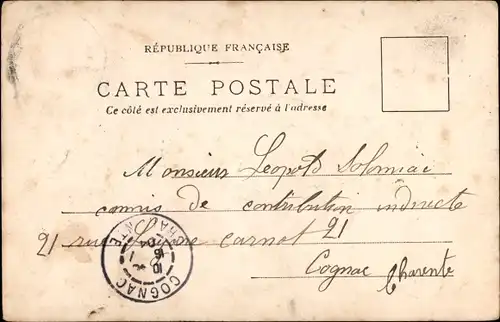 RÉPUBLIQUE FRANÇAISE
CARTE POSTALE
Ce côté est exclusivement réservé à l'adresse
Monsieur Leopold Solomiac
commis de contribution indirecte
21 rue carnot 21
Cognac Charente
COGNAC
CHARENTE